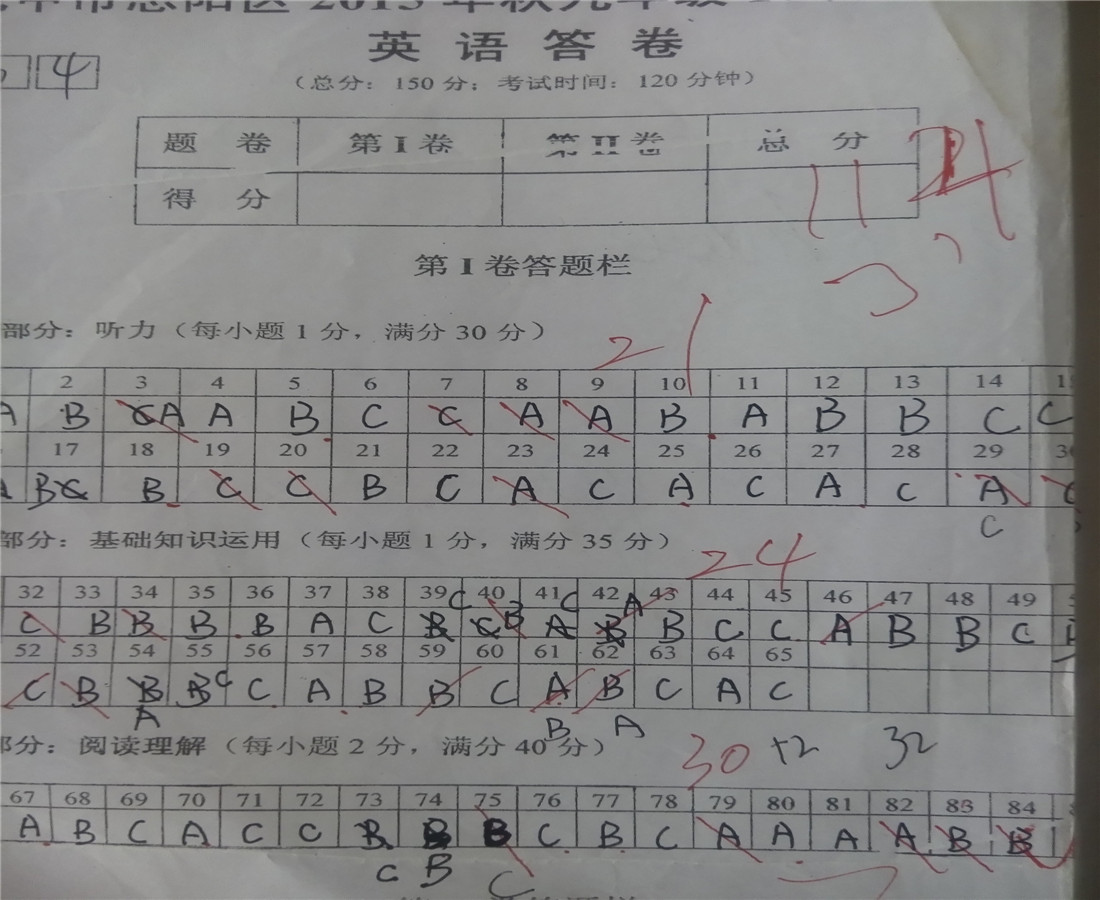 英语答卷
4
（总分：150分；考试时间：120分钟）
题 卷 第I卷 第II卷 总 分
得 分
11
第I卷答题栏
部分：听力（每小题1分，满分30分） 21
2 3 4 5 6 7 8 9 10 11 12 13 14
A B A A B C C A A B A B B C C
17 18 19 20 21 22 23 24 25 26 27 28 29
B B C C B C A C A C A C A
C
部分：基础知识运用（每小题1分，满分35分） 24
32 33 34 35 36 37 38 39 40 41 42 43 44 45 46 47 48 49
C B B B B A C C B C A B C C A B B C
52 53 54 55 56 57 58 59 60 61 62 63 64 65
C B B C C A B B C A B C A C
A B A
部分：阅读理解（每小题2分，满分40分） 30 +2 32
67 68 69 70 71 72 73 74 75 76 77 78 79 80 81 82 83 84
A B C A C C B B B C B C A A A A B B
C B C